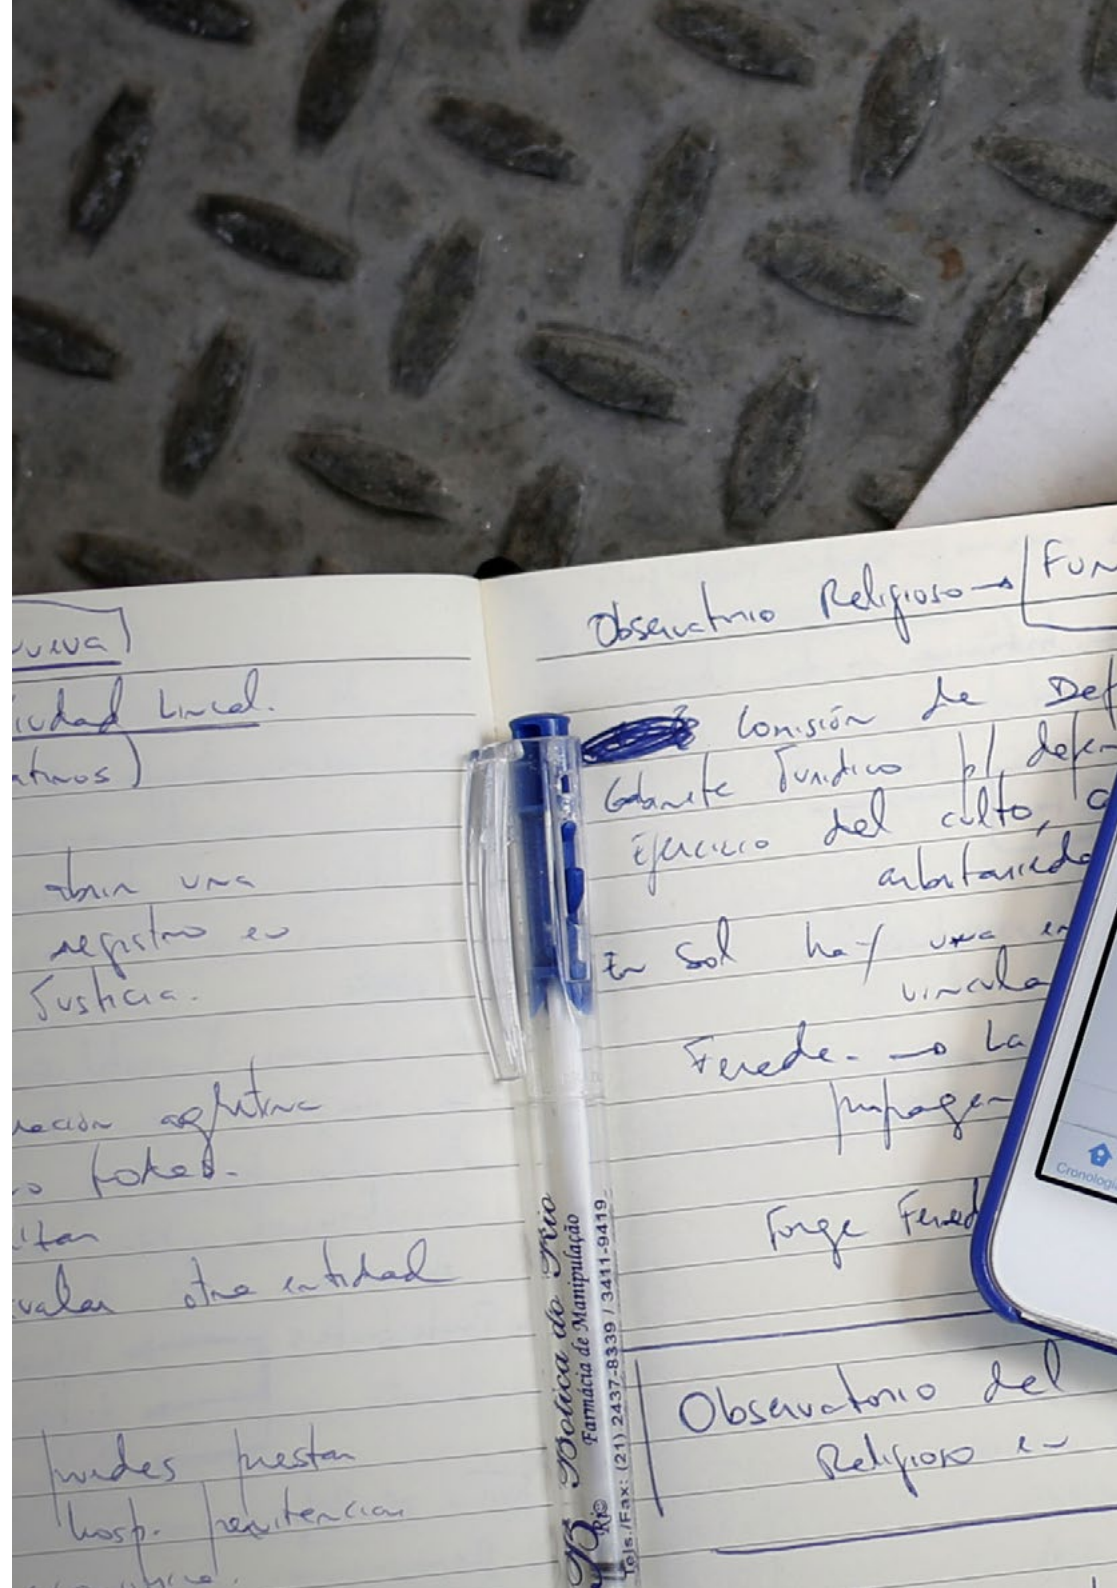 nueva)
Ciudad Lineal.
latinos)
abrir una
registro en
Justicia.
aglutina
otra entidad
puedes prestar
hosp. penitencias
Observatorio Religioso → FUN
Comisión de Def
Gabinete Jurídico p/ defen
ejercicio del culto, a
arbitrarieda
En Sol hay una en
vincula
Ferede. → La
propagan
Jorge Fered
Observatorio del
Religioso en
Botica do Rio
Farmácia de Manipulação
Tels./Fax: (21) 2437-8339 / 3411-9419
Rio
Cronología